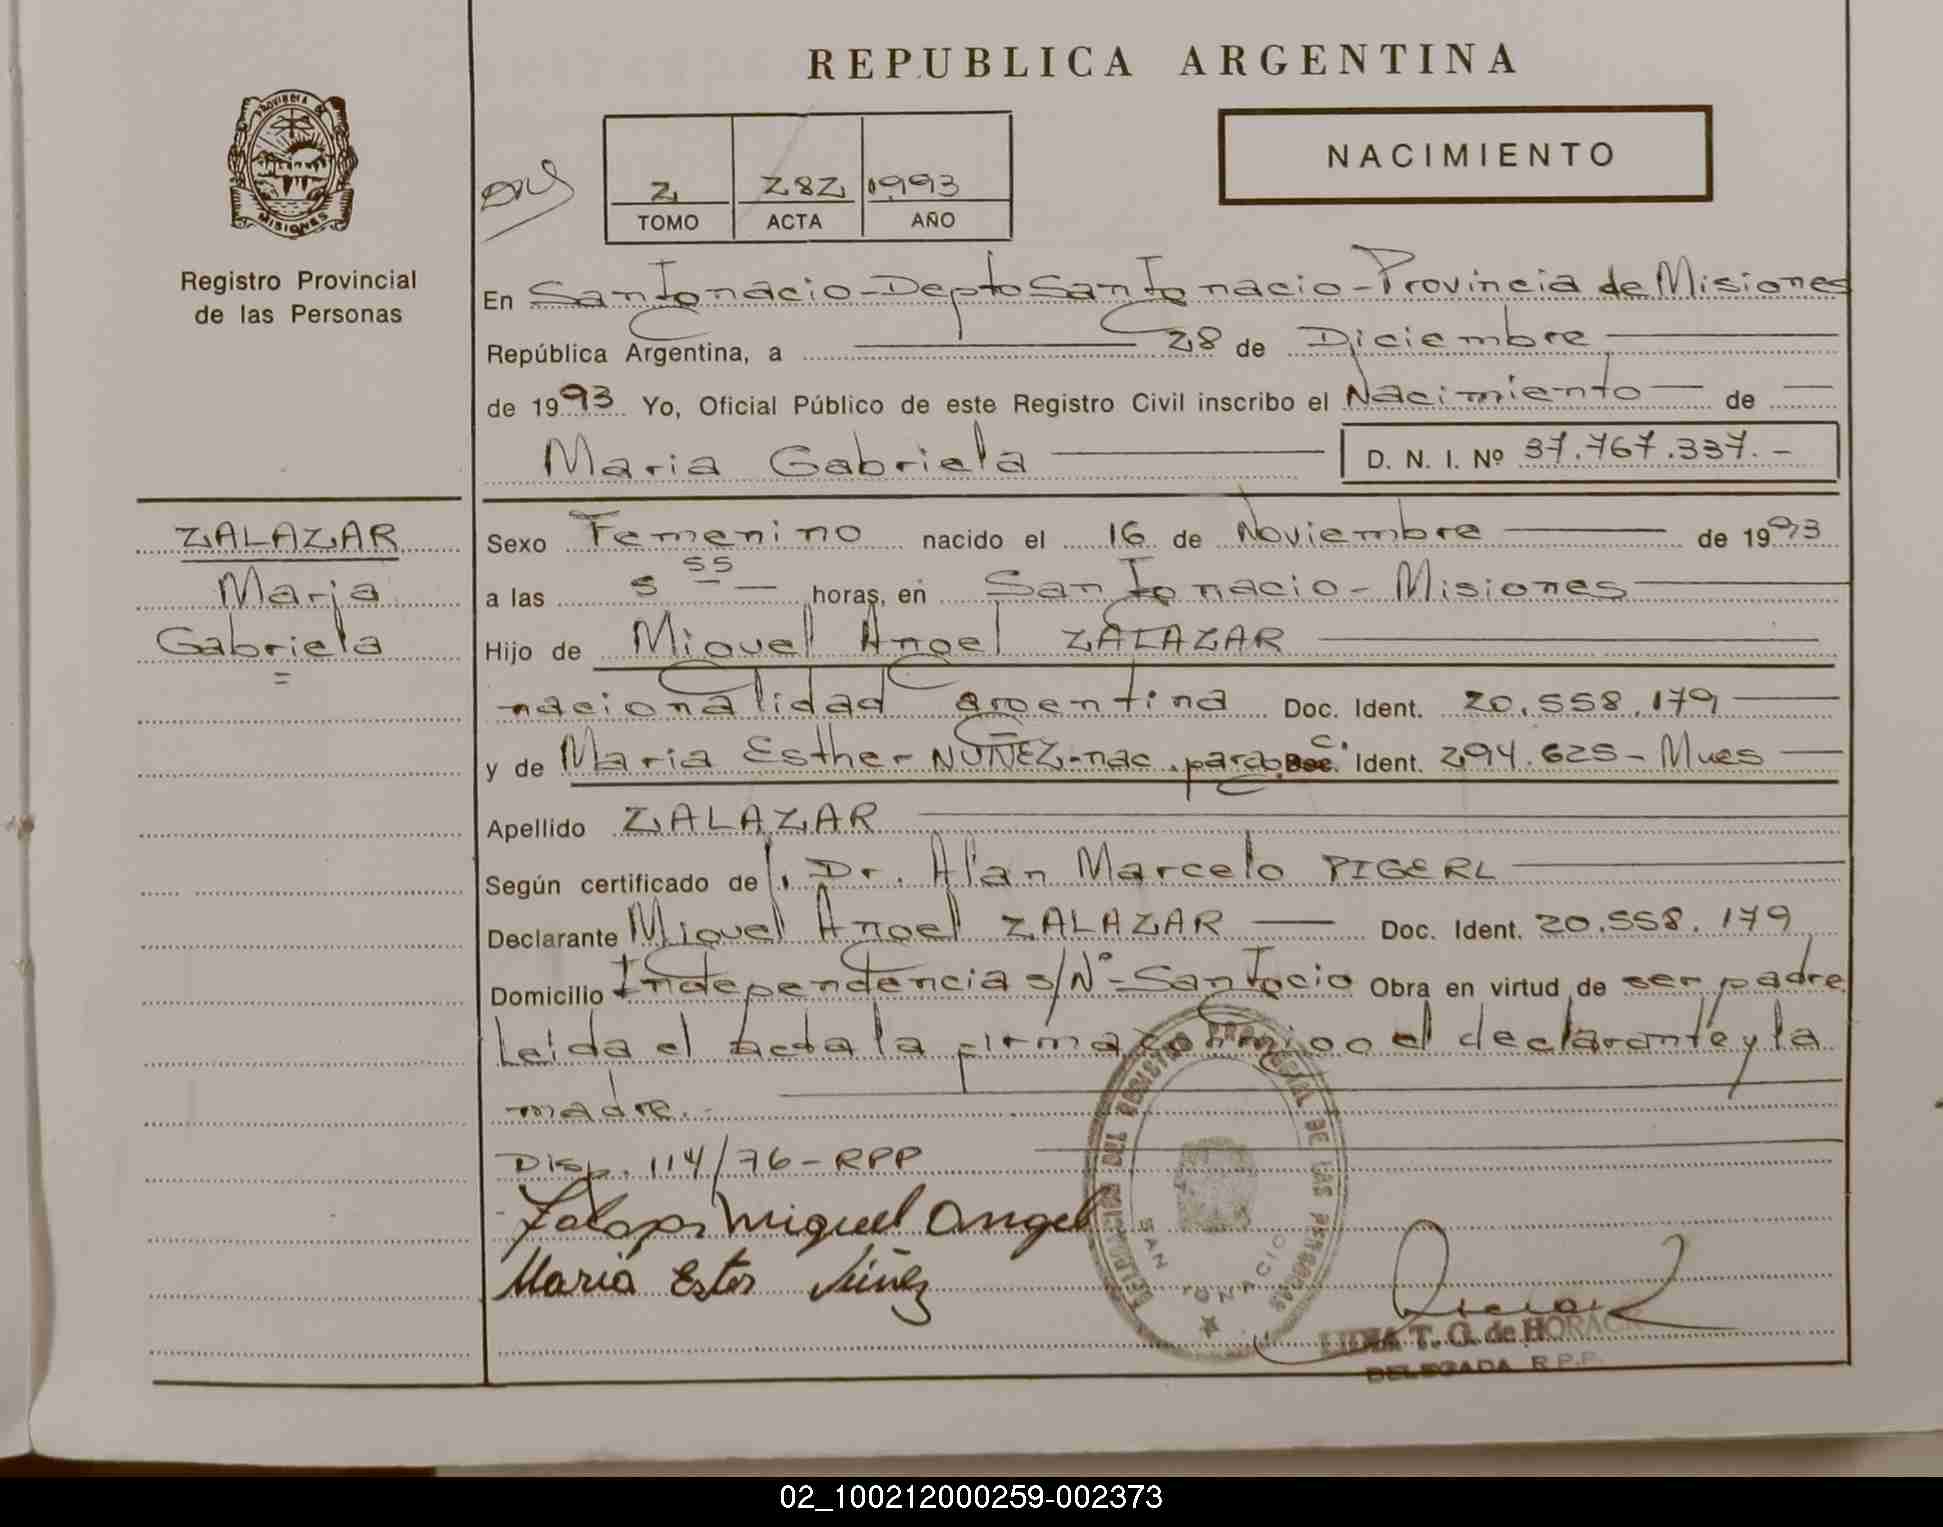 REPUBLICA ARGENTINA
PROVINCIA DE
MISIONES
Registro Provincial
de las Personas
2 282 1993
TOMO ACTA AÑO
NACIMIENTO
En San Ignacio - Depto San Ignacio - Provincia de Misiones
República Argentina, a 28 de Diciembre
de 1993 Yo, Oficial Público de este Registro Civil inscribo el Nacimiento de
Maria Gabriela D. N. I. Nº 37.767.337.-
ZALAZAR
Maria
Gabriela
Sexo Femenino nacido el 16 de Noviembre de 1993
a las 5 55 horas, en San Ignacio - Misiones
Hijo de Miguel Angel ZALAZAR
nacionalidad argentina Doc. Ident. 20.558.179
y de Maria Esther NUÑEZ - nac. parag. Doc. C. Ident. 294.625 - Mnes
Apellido ZALAZAR
Según certificado del Dr. Alan Marcelo PIGERL
Declarante Miguel Angel ZALAZAR Doc. Ident. 20.558.179
Domicilio Independencia s/Nº - San Igcio Obra en virtud de ser padre
Leida el acta la firma conmigo el declarante y la
madre.-
Disp. 114/76 - RPP
Zalazar Miguel Angel
Maria Ester Núñez
DEL REGISTRO PROVINCIAL DE LAS PERSONAS
SAN IGNACIO
LIDIA T. G. de HORACK
DELEGADA R.P.P.
02_100212000259-002373